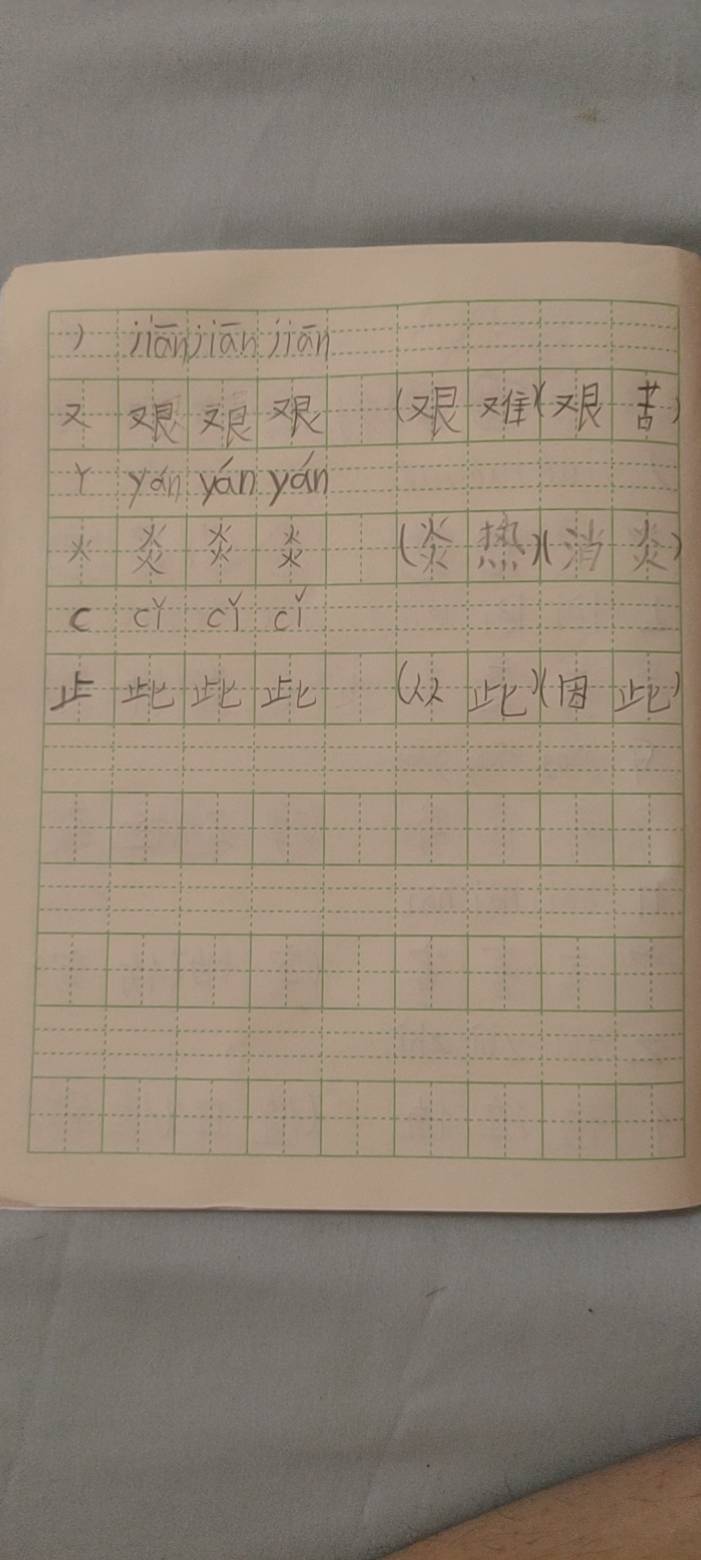 J jiān jiān jiān
又 艰 艰 艰 (艰难)(艰苦)
Y yán yán yán
火 炎 炎 炎 (炎热)(消炎)
C cǐ cǐ cǐ
止 此 此 此 (从此)(因此)